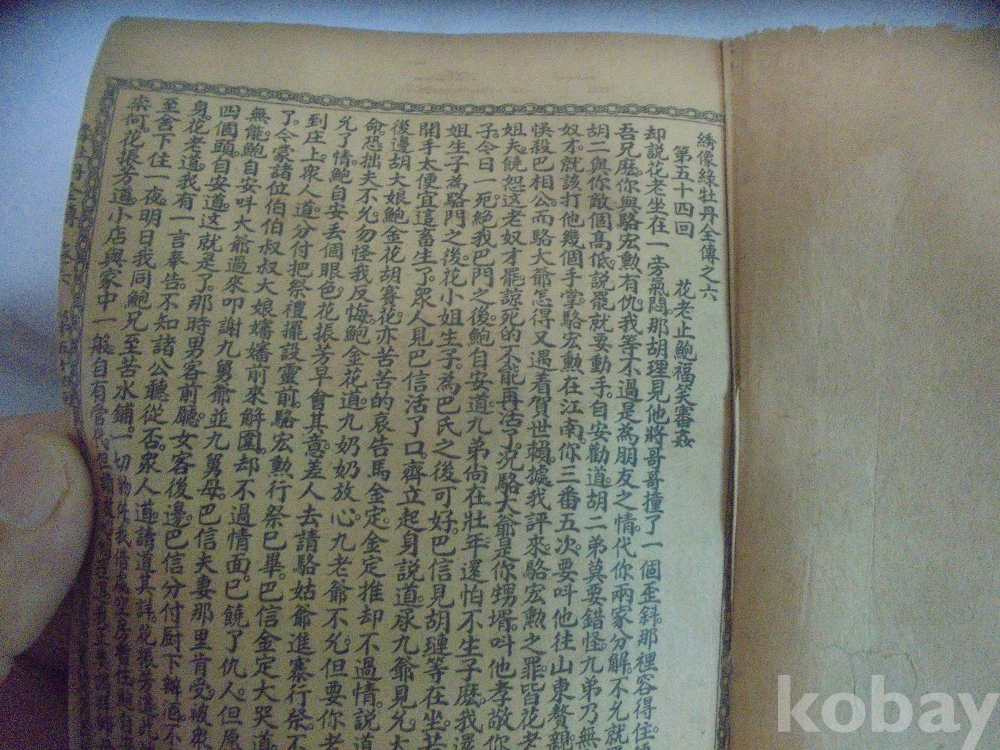 绣像綠牡丹全傳之六
第五十四回　花老止鮑福笑審姦
却説花老坐在一旁氣悶那胡理見他將哥哥撞了一個歪斜那裡容得住
吾兄麽你與駱宏勲有仇我等不過是為朋友之情代你兩家分解不允就
胡二與你敵個髙低説罷就要動手自安勸道胡二弟莫要錯怪九弟乃無
奴才就該打他幾個手掌駱宏勲在江南你三番五次要呌他往山東贅親
悞殺巴相公而駱大爺怎得又遇着賀世賴據我評來駱宏勲之罪皆花老
姐夫饒恕這老奴才罷諒死的不能再活了况駱大爺是你甥壻呌他孝敬你
子今日一死絶我巴門之後鮑自安道九弟尚在壯年還怕不生子麽我還
姐生子為駱門之後花小姐生子為巴氏之後可好巴信見胡璉等在坐苦
開手太便宜這畜生了衆人見巴信活了口齊立起身説道承九爺見允大
後邊胡大娘鮑金花胡賽花亦苦苦的哀告馬金定金定推却不過情説道
命恐拙夫不允勿怪我反悔鮑金花道九奶奶放心九老爺不允但要你老
允了情鮑自安丢個眼色花振芳早會其意差人去請駱姑爺進寨行祭不
到庄上衆人道分付把祭禮擺設靈前駱宏勲行祭巳畢巴信金定大哭道
了令蒙諸位伯伯叔叔大娘嬸嬸前來解圍却不過情面巳饒了仇人但愿
無龍鮑自安呌大爺過來叩謝九舅爺並九舅母巴信夫妻那里肯受被衆
四個頭自安道這就是了那時男客前廳女客後邊巴信分付厨下辦酒不
身花老道我有一言奉告不知諸公聽從否衆人道請道其詳花振芳道此
至舍下住一夜明日我同鮑兄至苦水鋪一切物件我借
来何花振芳道小店與家中一般自有當代
kobay